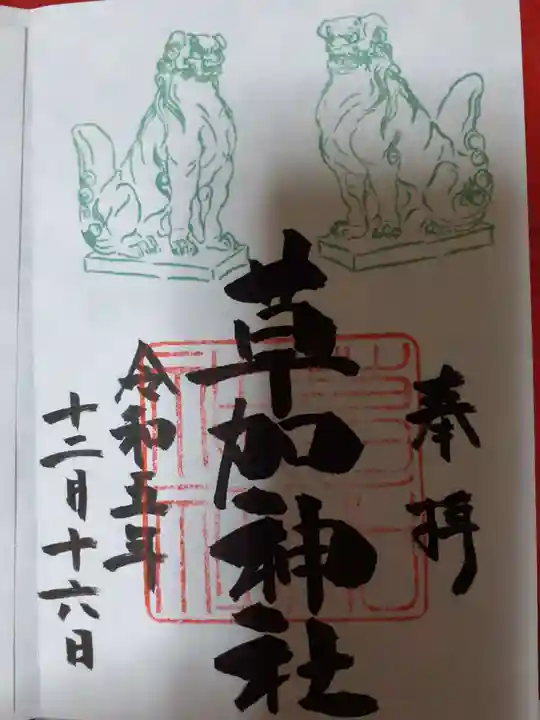 奉拝
草加神社
令和五年
十二月十六日